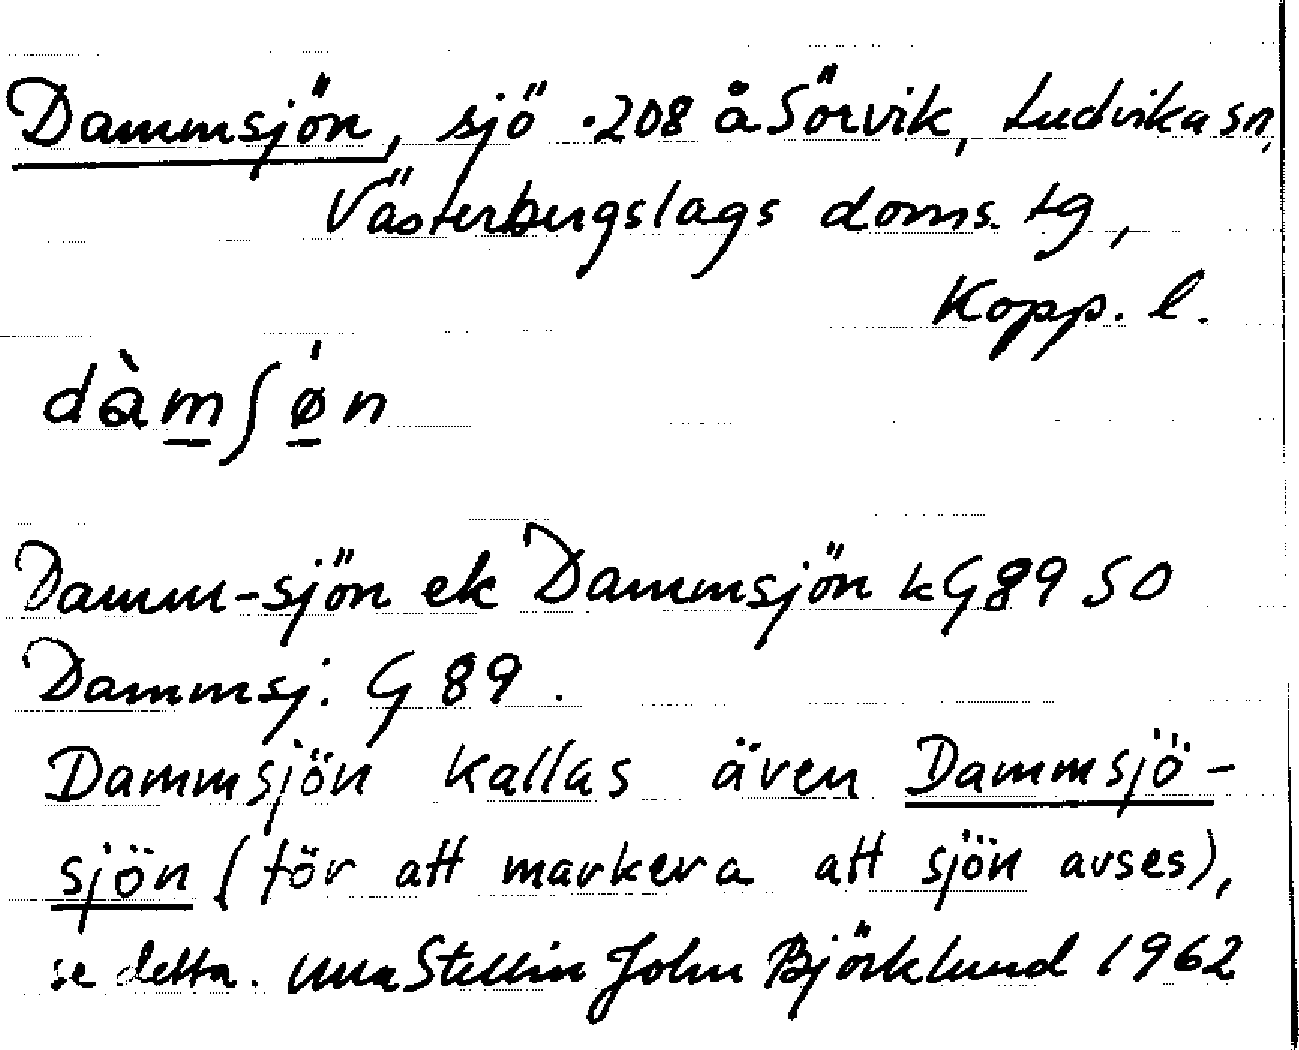 Dammsjön, sjö .208 å Sörvik, Ludvika sn,
Västerbergslags doms. tg,
Kopp. l.
dàm̲ʃǿ̲n
Damm-sjön ek Dammsjön k G89 SO
Dammsj. G 89.
Dammsjön kallas även Dammsjö-
sjön (för att markera att sjön avses),
se detta. Ulla Stellin John Björklund 1962